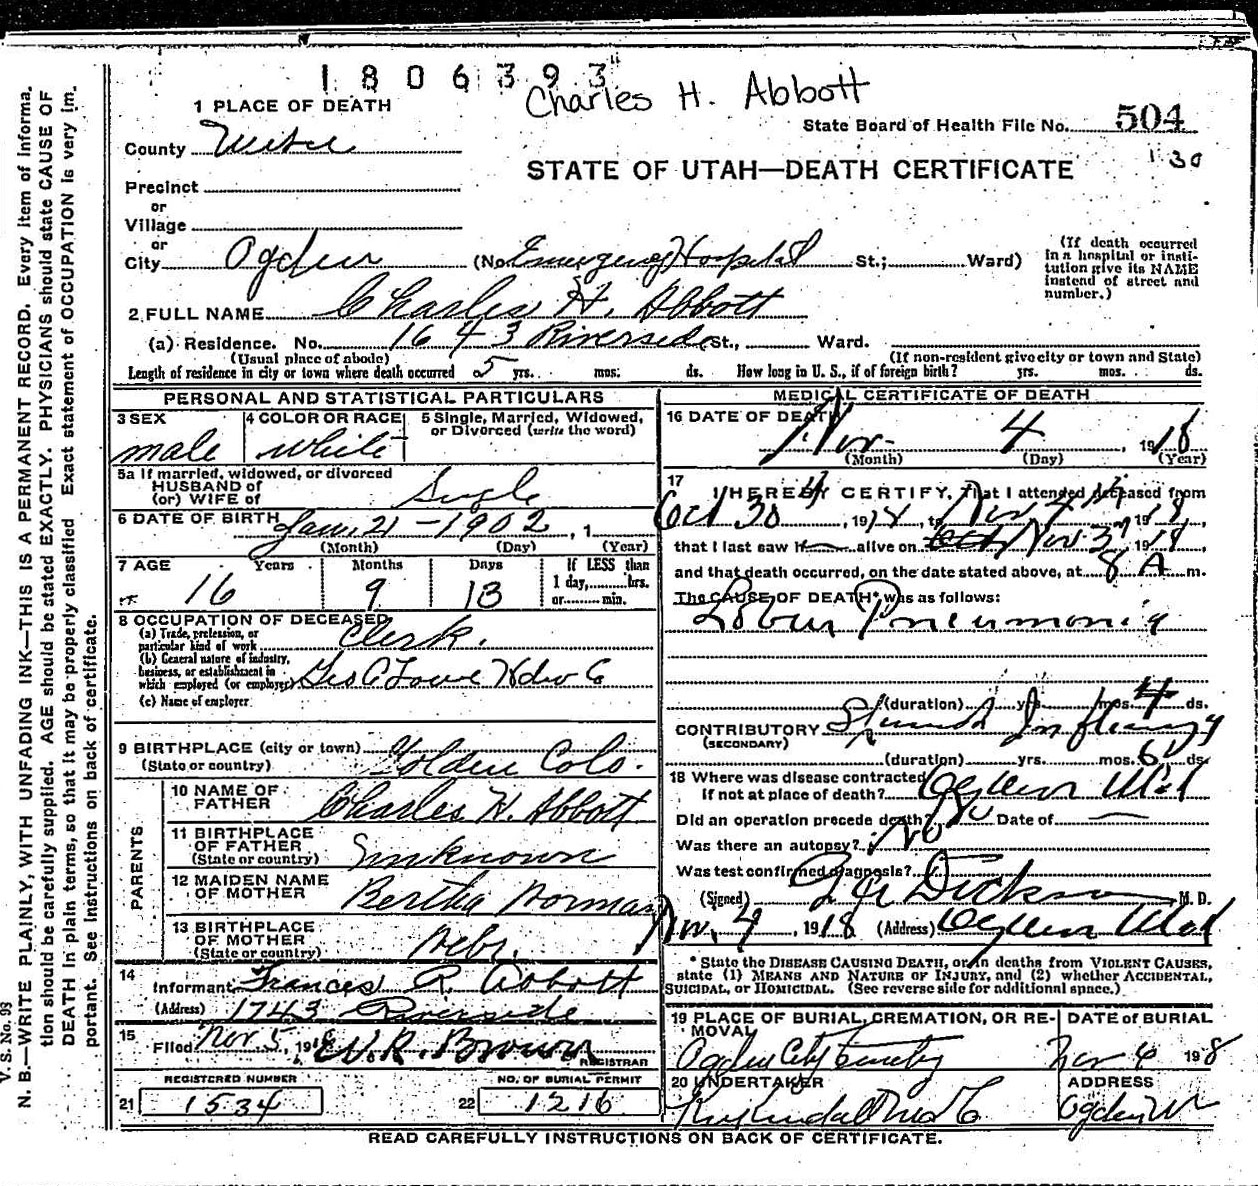 1806393
Charles H. Abbott
1 PLACE OF DEATH
State Board of Health File No. 504
1 30
County
STATE OF UTAH—DEATH CERTIFICATE
Precinct
or
Village
or
City Ogden (No. Emergency Hospital St.; Ward)
(If death occurred in a hospital or institution give its NAME instead of street and number.)
2 FULL NAME Charles H. Abbott
(a) Residence. No. 1643 Riverside St., Ward.
(Usual place of abode) (If non-resident give city or town and State)
Length of residence in city or town where death occurred 5 yrs. mos. ds. How long in U. S., if of foreign birth? yrs. mos. ds.
PERSONAL AND STATISTICAL PARTICULARS
3 SEX male
4 COLOR OR RACE white
5 Single, Married, Widowed, or Divorced (write the word)
5a If married, widowed, or divorced
HUSBAND of
(or) WIFE of Single
6 DATE OF BIRTH Jan. 21 - 1902, 1
(Month) (Day) (Year)
7 AGE Years 16 Months 9 Days 13 If LESS than 1 day, hrs. or min.
8 OCCUPATION OF DECEASED
(a) Trade, profession, or particular kind of work Clerk.
(b) General nature of industry, business, or establishment in which employed (or employer) Geo A Lowe Hdw Co
(c) Name of employer
9 BIRTHPLACE (city or town) Golden Colo.
(State or country)
PARENTS
10 NAME OF FATHER Charles H. Abbott
11 BIRTHPLACE OF FATHER (State or country) Unknown
12 MAIDEN NAME OF MOTHER Bertha Norman
13 BIRTHPLACE OF MOTHER (State or country) Nebr.
14 Informant Frances R. Abbott
(Address) 1743 Riverside
15 Filed Nov 5, 1918 W.R. Brown REGISTRAR
REGISTERED NUMBER NO. OF BURIAL PERMIT
21 1534 22 1216
MEDICAL CERTIFICATE OF DEATH
16 DATE OF DEATH Nov - 4, 1918
(Month) (Day) (Year)
17 I HEREBY CERTIFY, That I attended deceased from
Oct 30, 1918, to Nov 4, 1918,
that I last saw h alive on Nov 3, 1918,
and that death occurred, on the date stated above, at 8 A m.
The CAUSE OF DEATH* was as follows:
Lobar Pneumonia
(duration) yrs. mos. 4 ds.
CONTRIBUTORY (SECONDARY) Spanish Influenza
(duration) yrs. mos. 6 ds.
18 Where was disease contracted
If not at place of death? Ogden Utah
Did an operation precede death? No Date of —
Was there an autopsy? No
Was test confirmed diagnosis?
(Signed) Dickson M. D.
Nov. 4, 1918 (Address) Ogden Utah
* State the DISEASE CAUSING DEATH, or in deaths from VIOLENT CAUSES, state (1) MEANS AND NATURE OF INJURY, and (2) whether ACCIDENTAL, SUICIDAL, or HOMICIDAL. (See reverse side for additional space.)
19 PLACE OF BURIAL, CREMATION, OR REMOVAL Ogden City Cemetery
DATE of BURIAL Nov 6 1918
20 UNDERTAKER
ADDRESS Ogden
READ CAREFULLY INSTRUCTIONS ON BACK OF CERTIFICATE.
V. S. No. 93
N. B.—WRITE PLAINLY, WITH UNFADING INK—THIS IS A PERMANENT RECORD. Every item of information should be carefully supplied. AGE should be stated EXACTLY. PHYSICIANS should state CAUSE OF DEATH in plain terms, so that it may be properly classified Exact statement of OCCUPATION is very important. See Instructions on back of certificate.